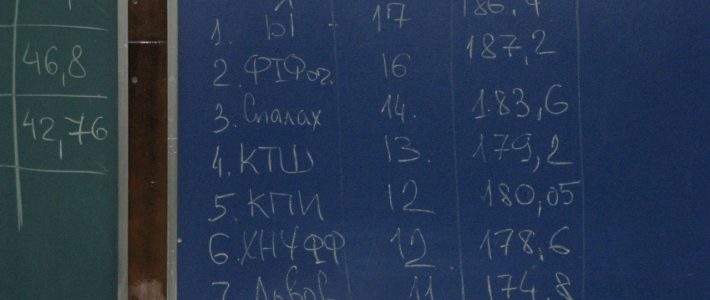 46,8
42,76
1. Ы - 17 186,4
2. ФТФ 16 187,2
3. Спалах 14. 183,6
4. КТШ 13. 179,2
5. КПИ 12 180,05
6. ХНУФФ 12. 178,6
7. Львов 11 174,8